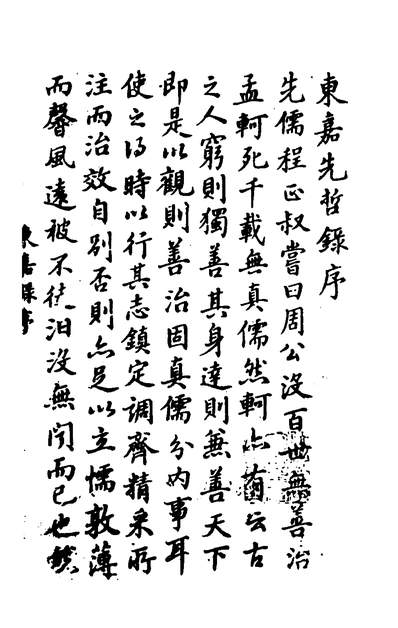 東嘉先哲錄序
先儒程正叔嘗曰周公沒百世無善治
孟軻死千載無真儒然軻亦有云古
之人窮則獨善其身達則兼善天下
即是以觀則善治固真儒分內事耳
使之得時以行其志鎮定調齊精采所
注而治效自別否則亦足以立懦敦薄
而馨風遠被不徒汩沒無聞而已也然